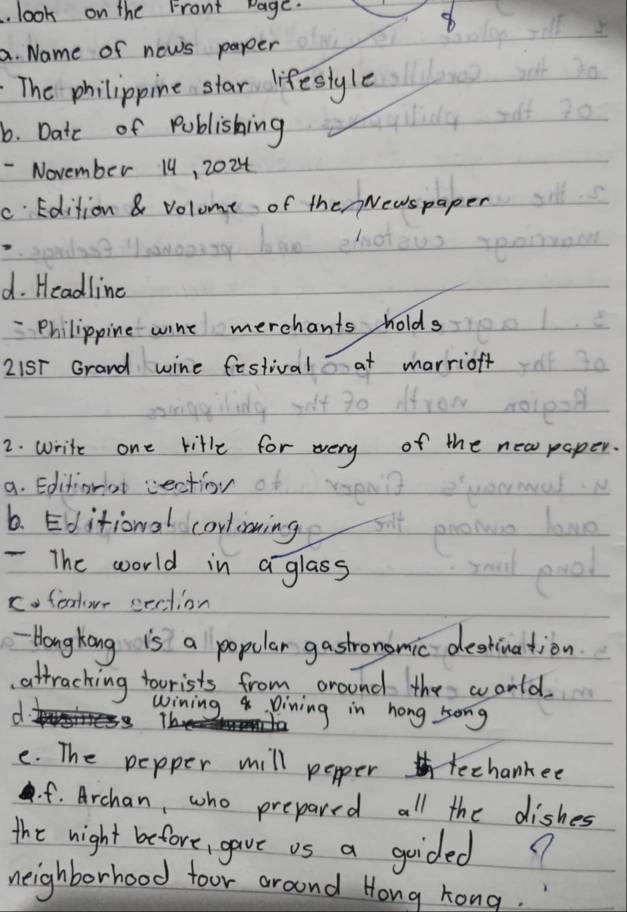 . look on the Front Page.
8
a. Name of news paper
- The philippine star lifestyle
b. Date of Publishing
- November 14, 2024
c. Edition & Volume of the Newspaper
-
d. Headline
- Philippine wine merchants holds
21ST Grand wine festival at marriott
2. Write one title for every of the new paper.
a. Editiorial section
b. Editional cartooning
- The world in a glass
c. feature section
- Hongkong is a popular gastronomic destination.
attracking tourists from around the world.
d. business Wining & Dining in hong kong
e. The pepper mill pepper techankee
f. Archan, who prepared all the dishes
the night before, gave us a guided ?
neighborhood tour around Hong kong.